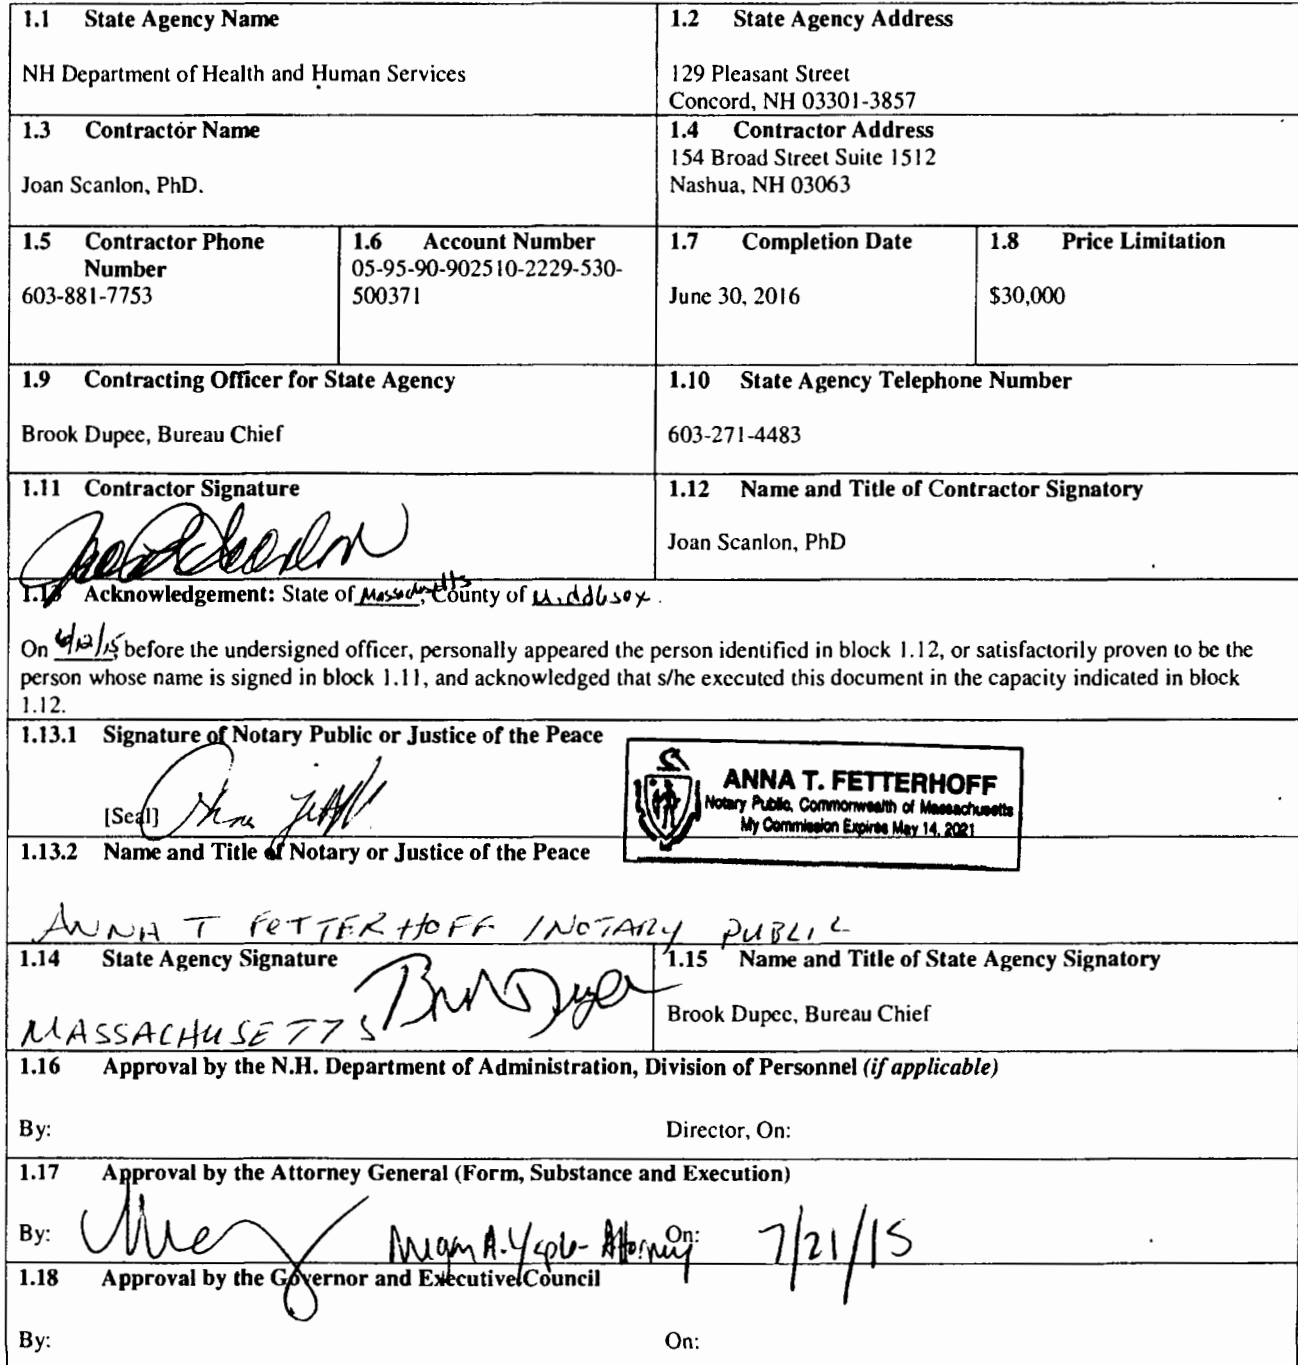 1.1 State Agency Name
NH Department of Health and Human Services
1.2 State Agency Address
129 Pleasant Street
Concord, NH 03301-3857
1.3 Contractor Name
Joan Scanlon, PhD.
1.4 Contractor Address
154 Broad Street Suite 1512
Nashua, NH 03063
1.5 Contractor Phone
Number
603-881-7753
1.6 Account Number
05-95-90-902510-2229-530-
500371
1.7 Completion Date
June 30, 2016
1.8 Price Limitation
$30,000
1.9 Contracting Officer for State Agency
Brook Dupee, Bureau Chief
1.10 State Agency Telephone Number
603-271-4483
1.11 Contractor Signature
1.12 Name and Title of Contractor Signatory
Joan Scanlon, PhD
1.13 Acknowledgement: State of Massachusetts, County of Middlesex.
On 6/12/15, before the undersigned officer, personally appeared the person identified in block 1.12, or satisfactorily proven to be the
person whose name is signed in block 1.11, and acknowledged that s/he executed this document in the capacity indicated in block
1.12.
1.13.1 Signature of Notary Public or Justice of the Peace
[Seal]
ANNA T. FETTERHOFF
Notary Public, Commonwealth of Massachusetts
My Commission Expires May 14, 2021
1.13.2 Name and Title of Notary or Justice of the Peace
ANNA T FETTERHOFF / NOTARY PUBLIC
1.14 State Agency Signature
MASSACHUSETTS
1.15 Name and Title of State Agency Signatory
Brook Dupee, Bureau Chief
1.16 Approval by the N.H. Department of Administration, Division of Personnel (if applicable)
By:
Director, On:
1.17 Approval by the Attorney General (Form, Substance and Execution)
By: Megan A. Yaple - Attorney On: 7/21/15
1.18 Approval by the Governor and Executive Council
By:
On: